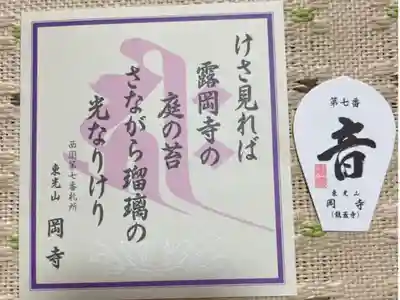 けさ見れば
露岡寺の
庭の苔
さながら瑠璃の
光なりけり
西国第七番札所
東光山 岡寺
第七番
音
東光山
岡寺
(龍蓋寺)